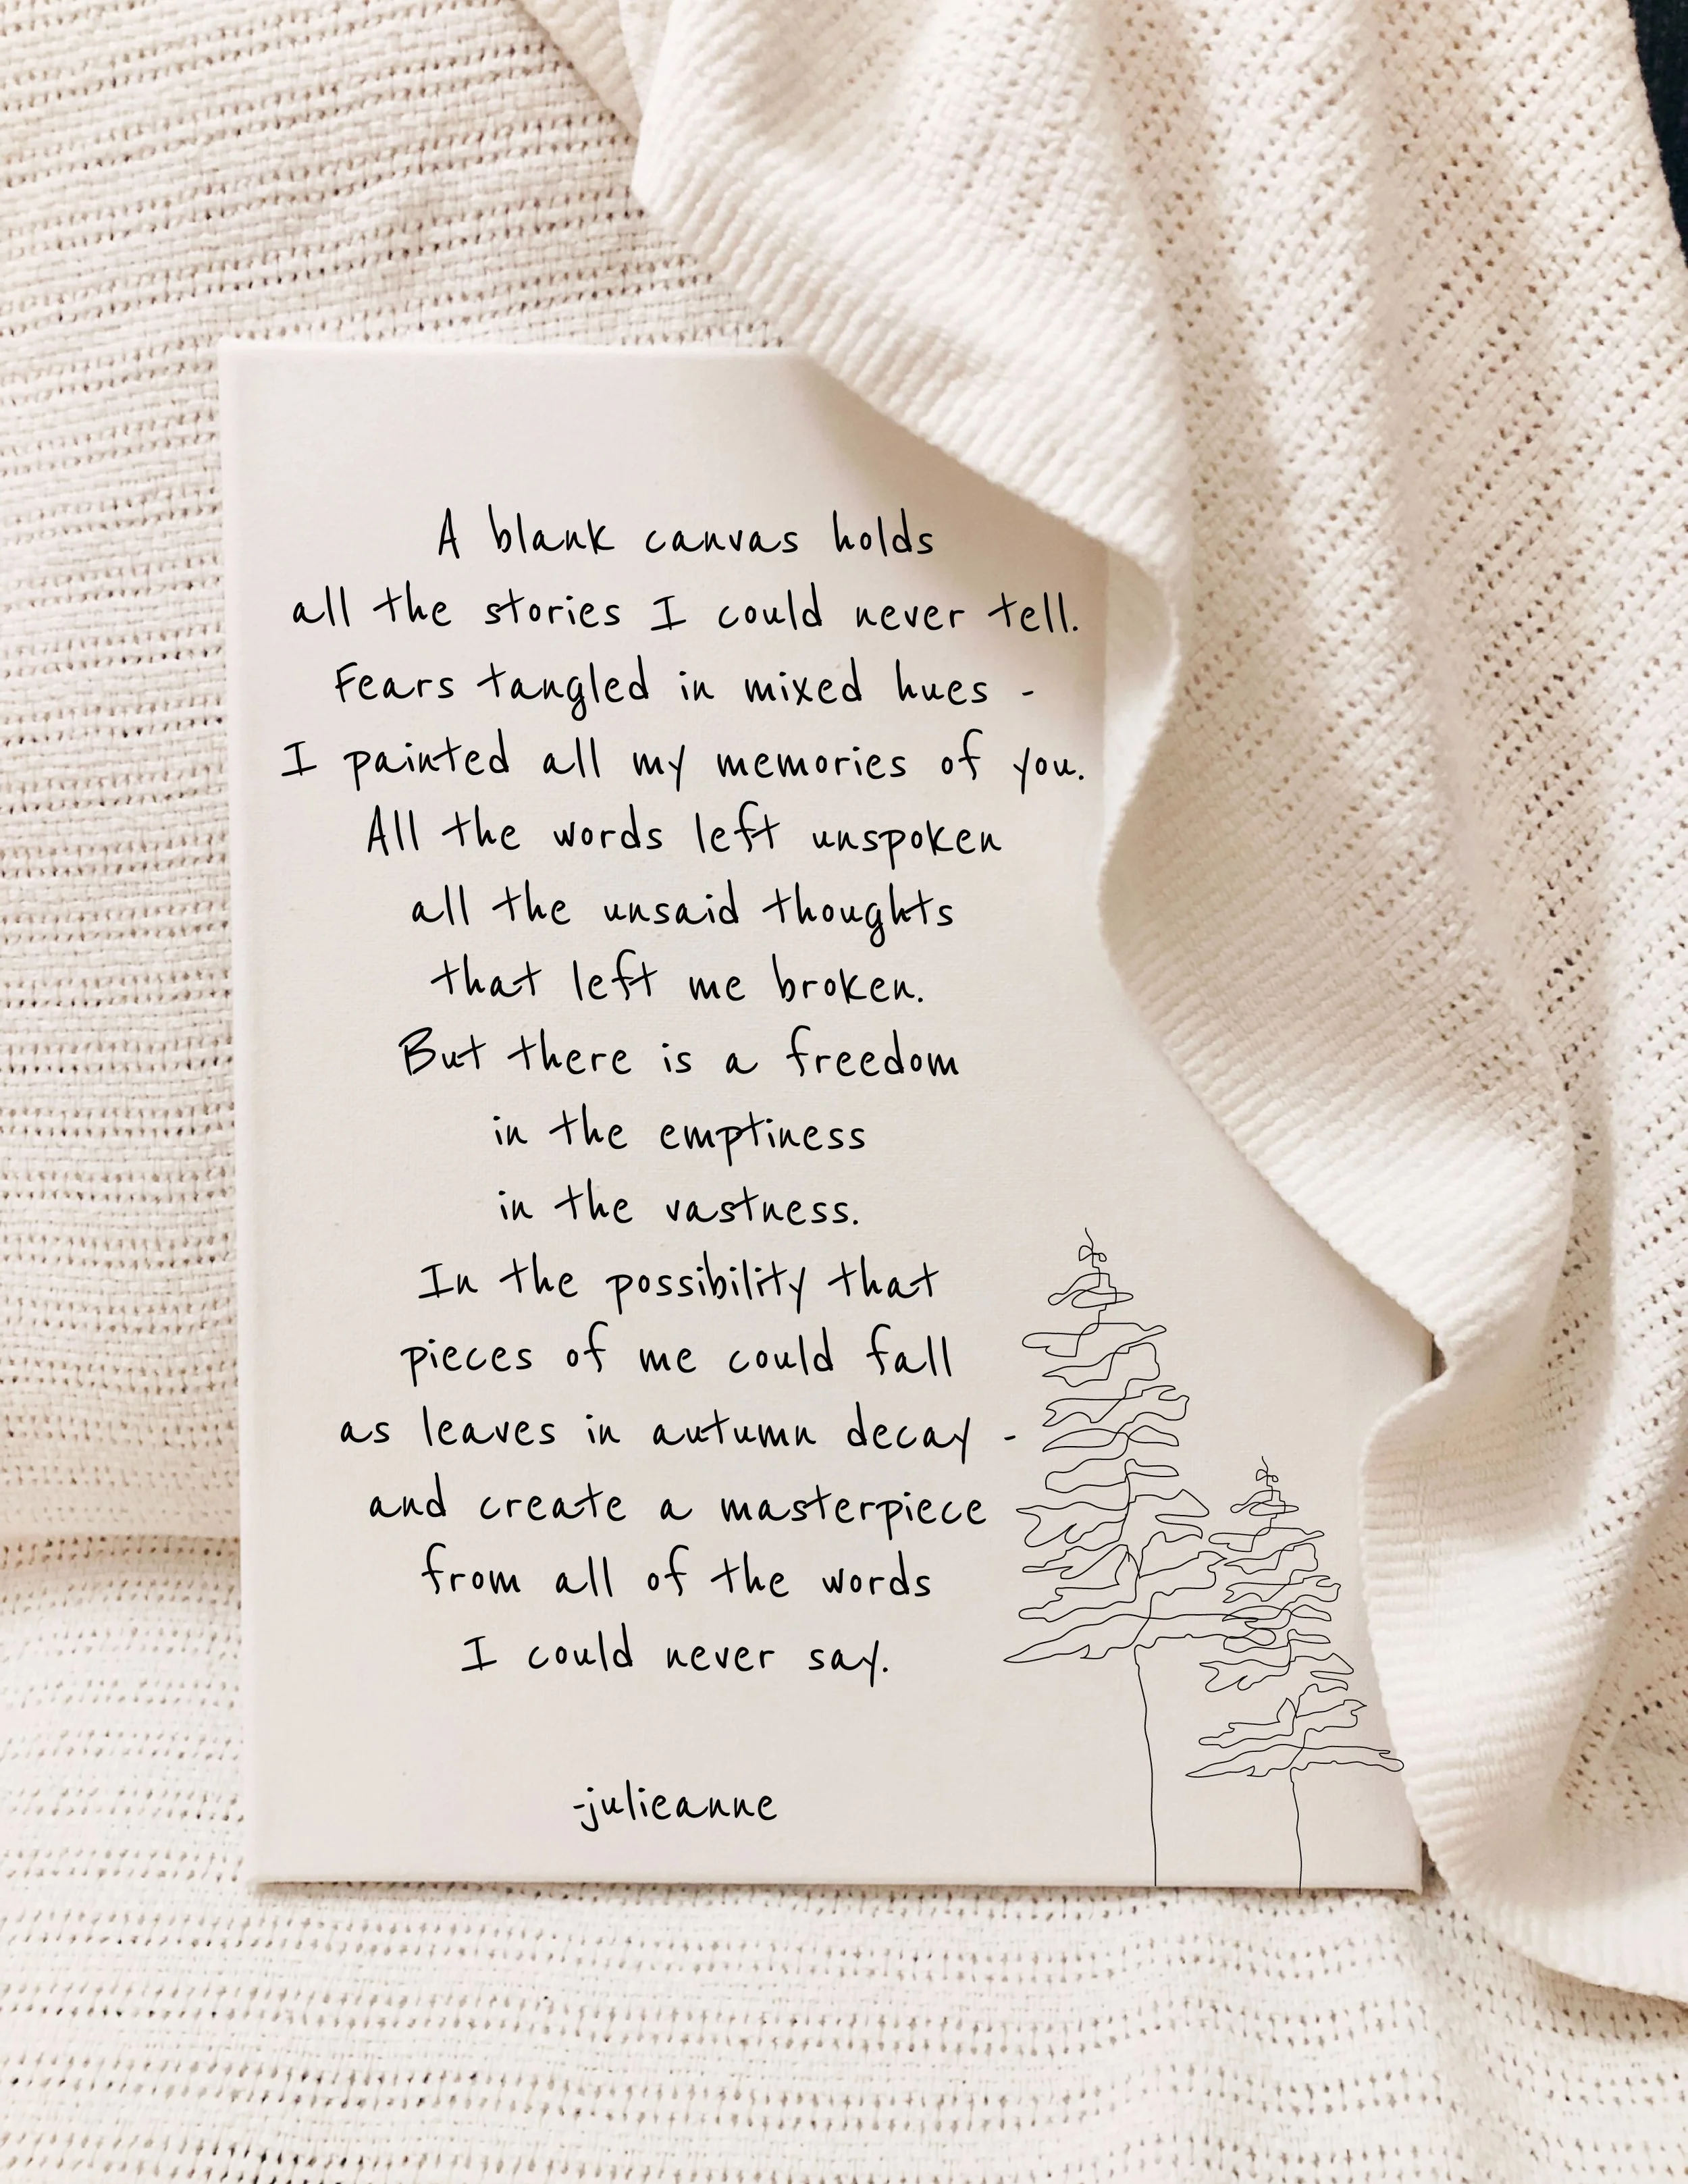 A blank canvas holds
all the stories I could never tell.
Fears tangled in mixed hues -
I painted all my memories of you.
All the words left unspoken
all the unsaid thoughts
that left me broken.
But there is a freedom
in the emptiness
in the vastness.
In the possibility that
pieces of me could fall
as leaves in autumn decay -
and create a masterpiece
from all of the words
I could never say.
-julieanne